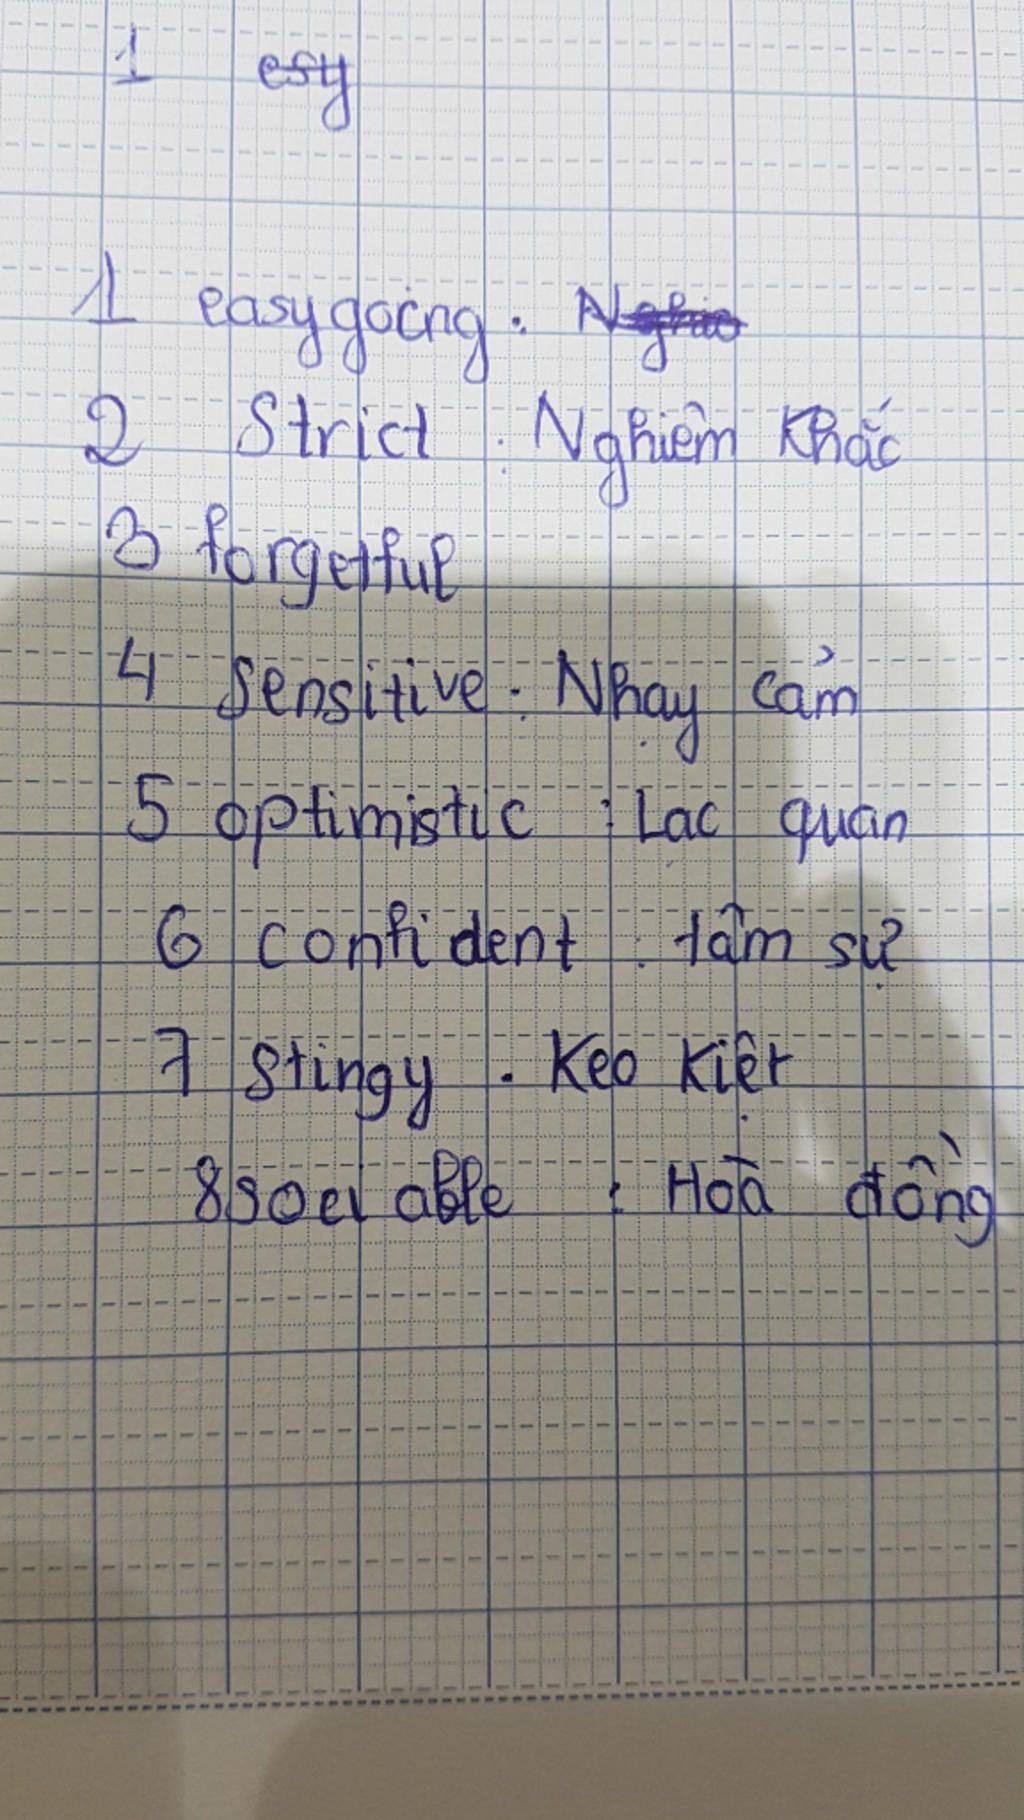 1 esy
1 easygoing : Nghio
2 Strict : Nghiêm Khắc
3 forgetful
4 Sensitive : Nhạy cảm
5 optimistic : Lạc quan
6 confident : tâm sự
7 Stingy . Keo Kiệt
8 sociable : Hoà đồng